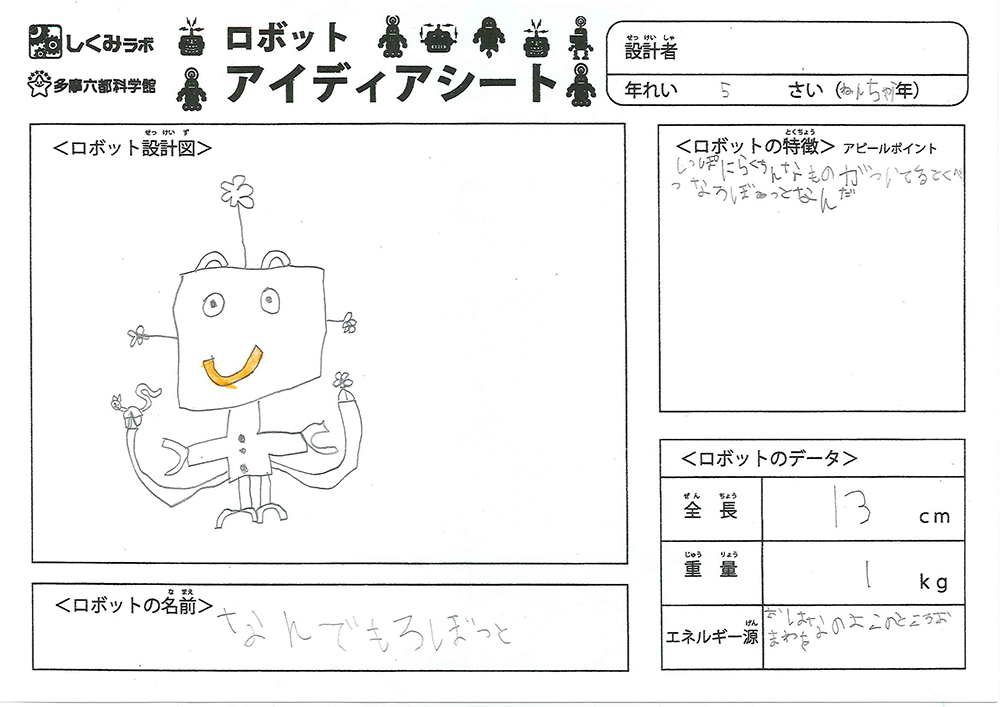 しくみラボ
多摩六都科学館
ロボット
アイディアシート
せっ けい しゃ
設計者
年れい 5 さい (ねんちょう年)
せっ けい ず
<ロボット設計図>
とくちょう
<ロボットの特徴> アピールポイント
しっぽにらくちんなものがついてるとくべ
つなろぼっとなんだ
な まえ
<ロボットの名前>
なんでもろぼっと
<ロボットのデータ>
ぜん ちょう
全長 13 cm
じゅう りょう
重量 1 kg
げん
エネルギー源
おはなのよこのところを
まわ